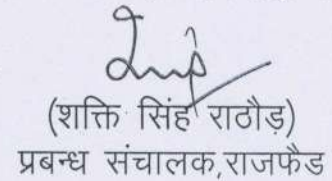 (शक्ति सिंह राठौड़)
प्रबन्ध संचालक,राजफैड